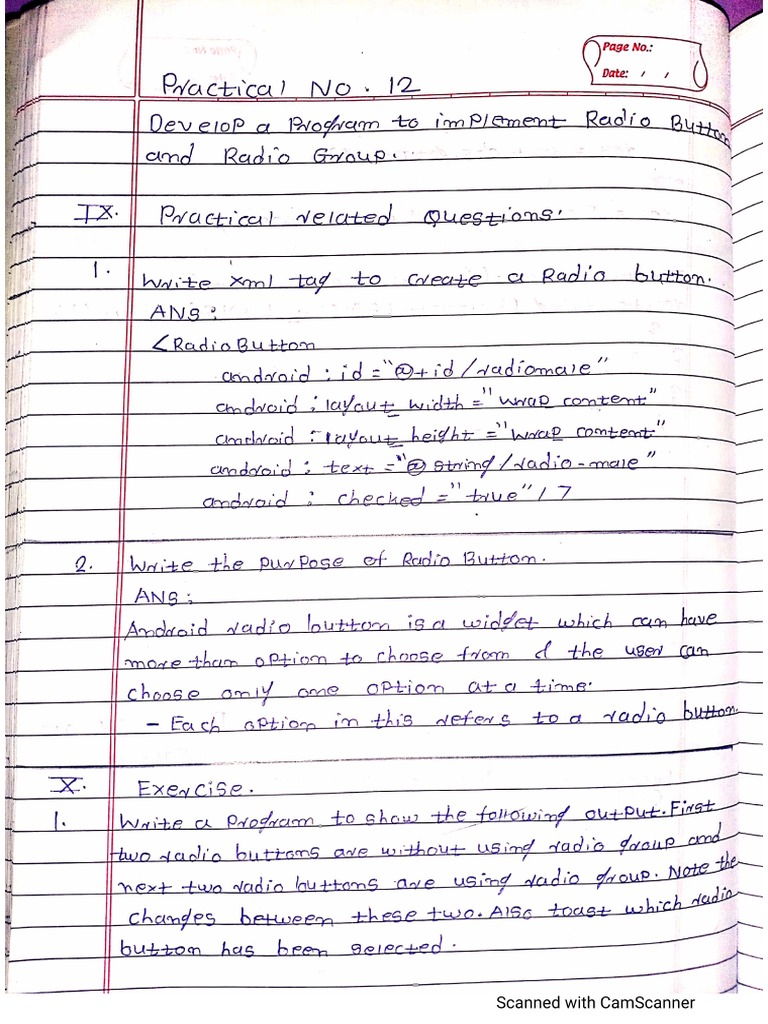 Page No.:
Date: / /
Practical No. 12
Develop a Program to implement Radio Button
and Radio Group.
IX. Practical related Questions.
1. Write xml tag to create a Radio button.
ANS:
<RadioButton
android:id="@+id/radiomale"
android:layout_width="wrap content"
android:layout_height="wrap content"
android:text="@string/radio-male"
android:checked="true"/>
2. Write the purpose of Radio Button.
ANS:
Android radio button is a widget which can have
more than option to choose from & the user can
choose only one option at a time.
- Each option in this refers to a radio button.
X. Exercise.
1. Write a program to show the following output. First
two radio buttons are without using radio group and
next two radio buttons are using radio group. Note the
changes between these two. Also toast which radio
button has been selected.
Scanned with CamScanner